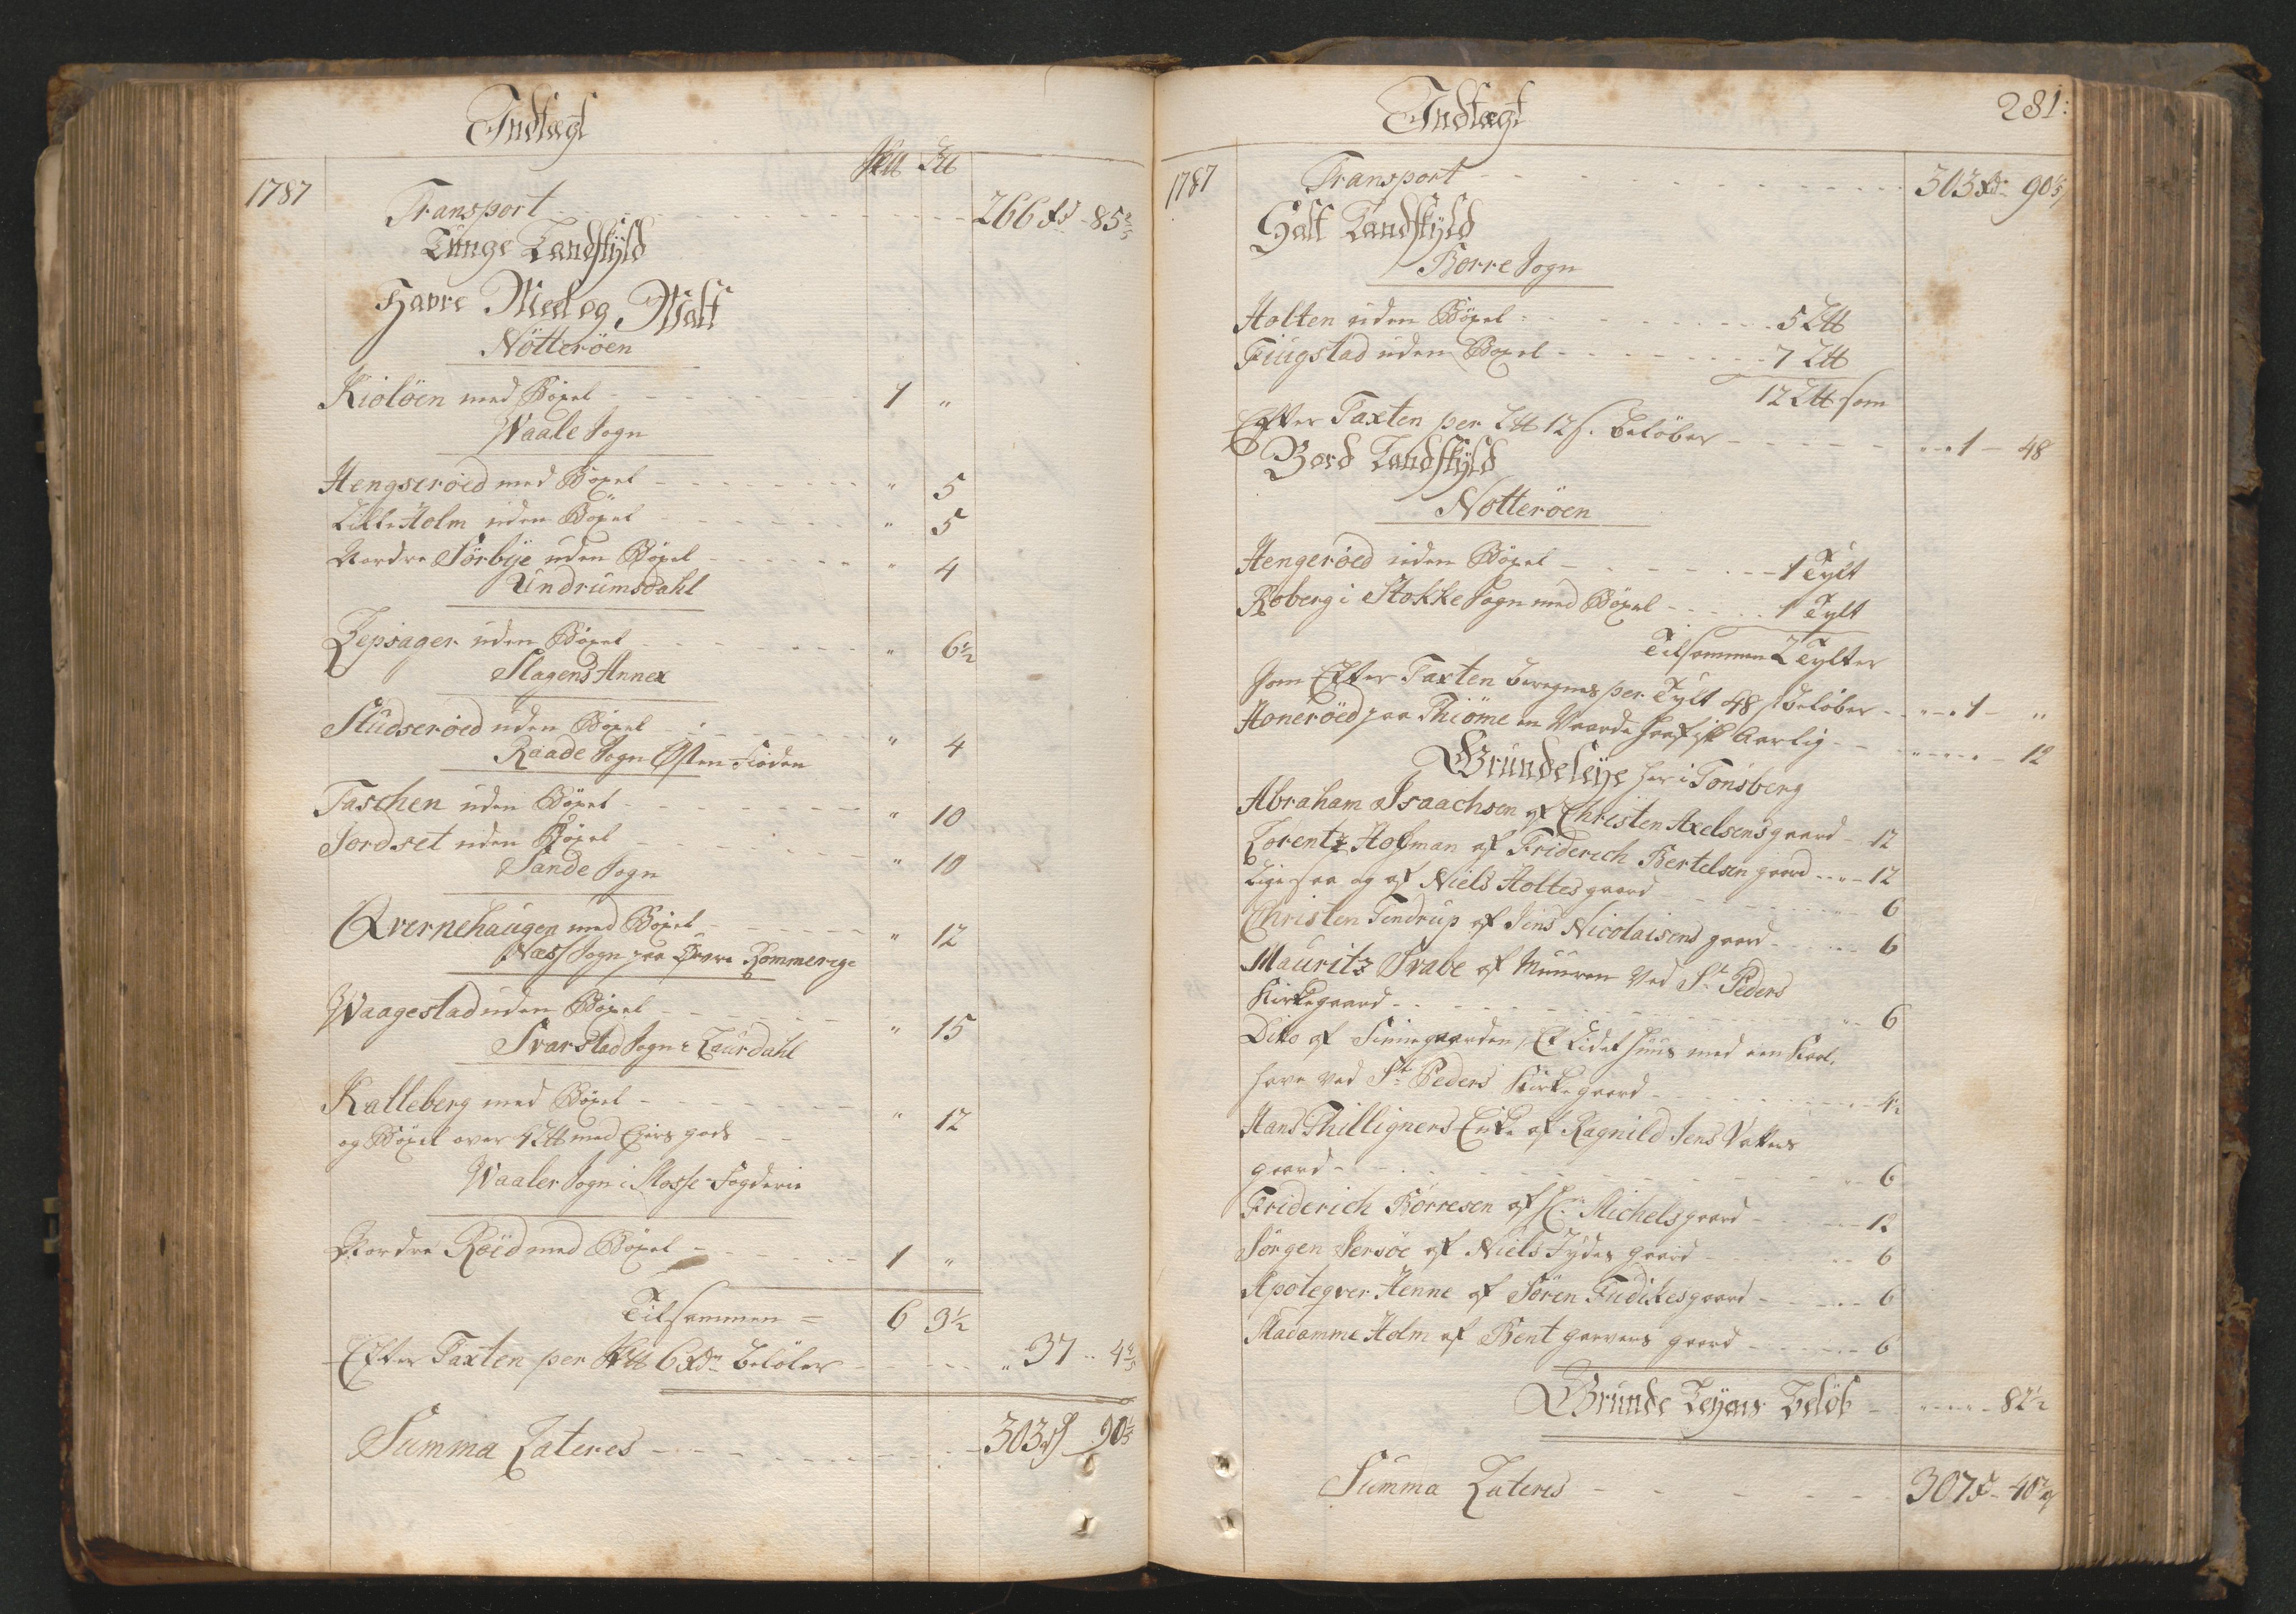 Indtægt
1787
Transport 266 rd 85 2/5
Tunge Landskyld
Havre Meel og Malt
Nötteröen
Kiölöen med Böxel 1 "
Waale Sogn
Hengseröed med Böxel " 5
Lille Holm uden Böxel " 5
Nordre Sörbye uden Böxel " 4
Undrumsdahl
Lepsager uden Böxel " 6 1/2
Slagens Annex
Studseröed uden Böxel " 4
Raade Sogn Østen Fioden
Taschen uden Böxel " 10
Jordset uden Böxel " 10
Sande Sogn
Qvernehaugen med Böxel " 12
Næss Sogn paa Övre Rommerige
Waagestad uden Böxel " 15
Svarstad Sogn i Laurdahl
Kalleberg med Böxel " 12
og Böxel over 4 L℔ med Eiers gods
Waaler Sogn i Mosse Fogderie
Nordre Röed med Böxel 1 "
Tilsammen = 6 3 1/2
Efter Taxten per S℔ 6 rdr beløber " 37 " 4 4/5
Summa Lateres 303 rd 90 1/5
Indtægt
281:
1787
Transport 303 rd 90 1/5
Salt Landskyld
Borre Sogn
Holten uden Böxel 5 L℔
Fiugstad uden Böxel 7 L℔
12 L℔ som
Efter Taxten per L℔ 12 s. beløber 1 48
Bord Landskyld
Nötteröen
Hengeröed uden Böxel 1 Tylt
Roberg i Stokke Sogn med Böxel 1 Tylt
Tilsammen 2 Tylter
Som Efter Taxten beregnes per Tylt 48 s beløber 1 "
Honeröed paa Thiöme en Vaarde Aarlig 12
Grundeleÿe her i Tonsberg
Abraham Isaachsen af Christen Axelsens gaard 12
Lorentz Hofman af Friderich Bertelsen gaard 12
Ligesaa og af Niels Holtes gaard 6
Christen Tendrup af Jens Nicolaisens gaard 6
Mauritz Svabe af Muuren Ved St Peders
Kirkegaard 6
Dito af Sinnegaarden, Et Lidet huus med een Kaal,
have ved St Peders Kirkegaard 4 1/2
Hans Thilligners Enke af Ragnild Jens
gaard 6
Friderich Börresen af Michels gaard 12
Jörgen Jersöe af Niels gaard 6
Apoteqver Henne af Sören Fudikes gaard 6
Madamme Holm af Bent garvers gaard 6
Grunde Leÿens Beløb 82 1/2
Summa Lateres 307 rd 40 7/10